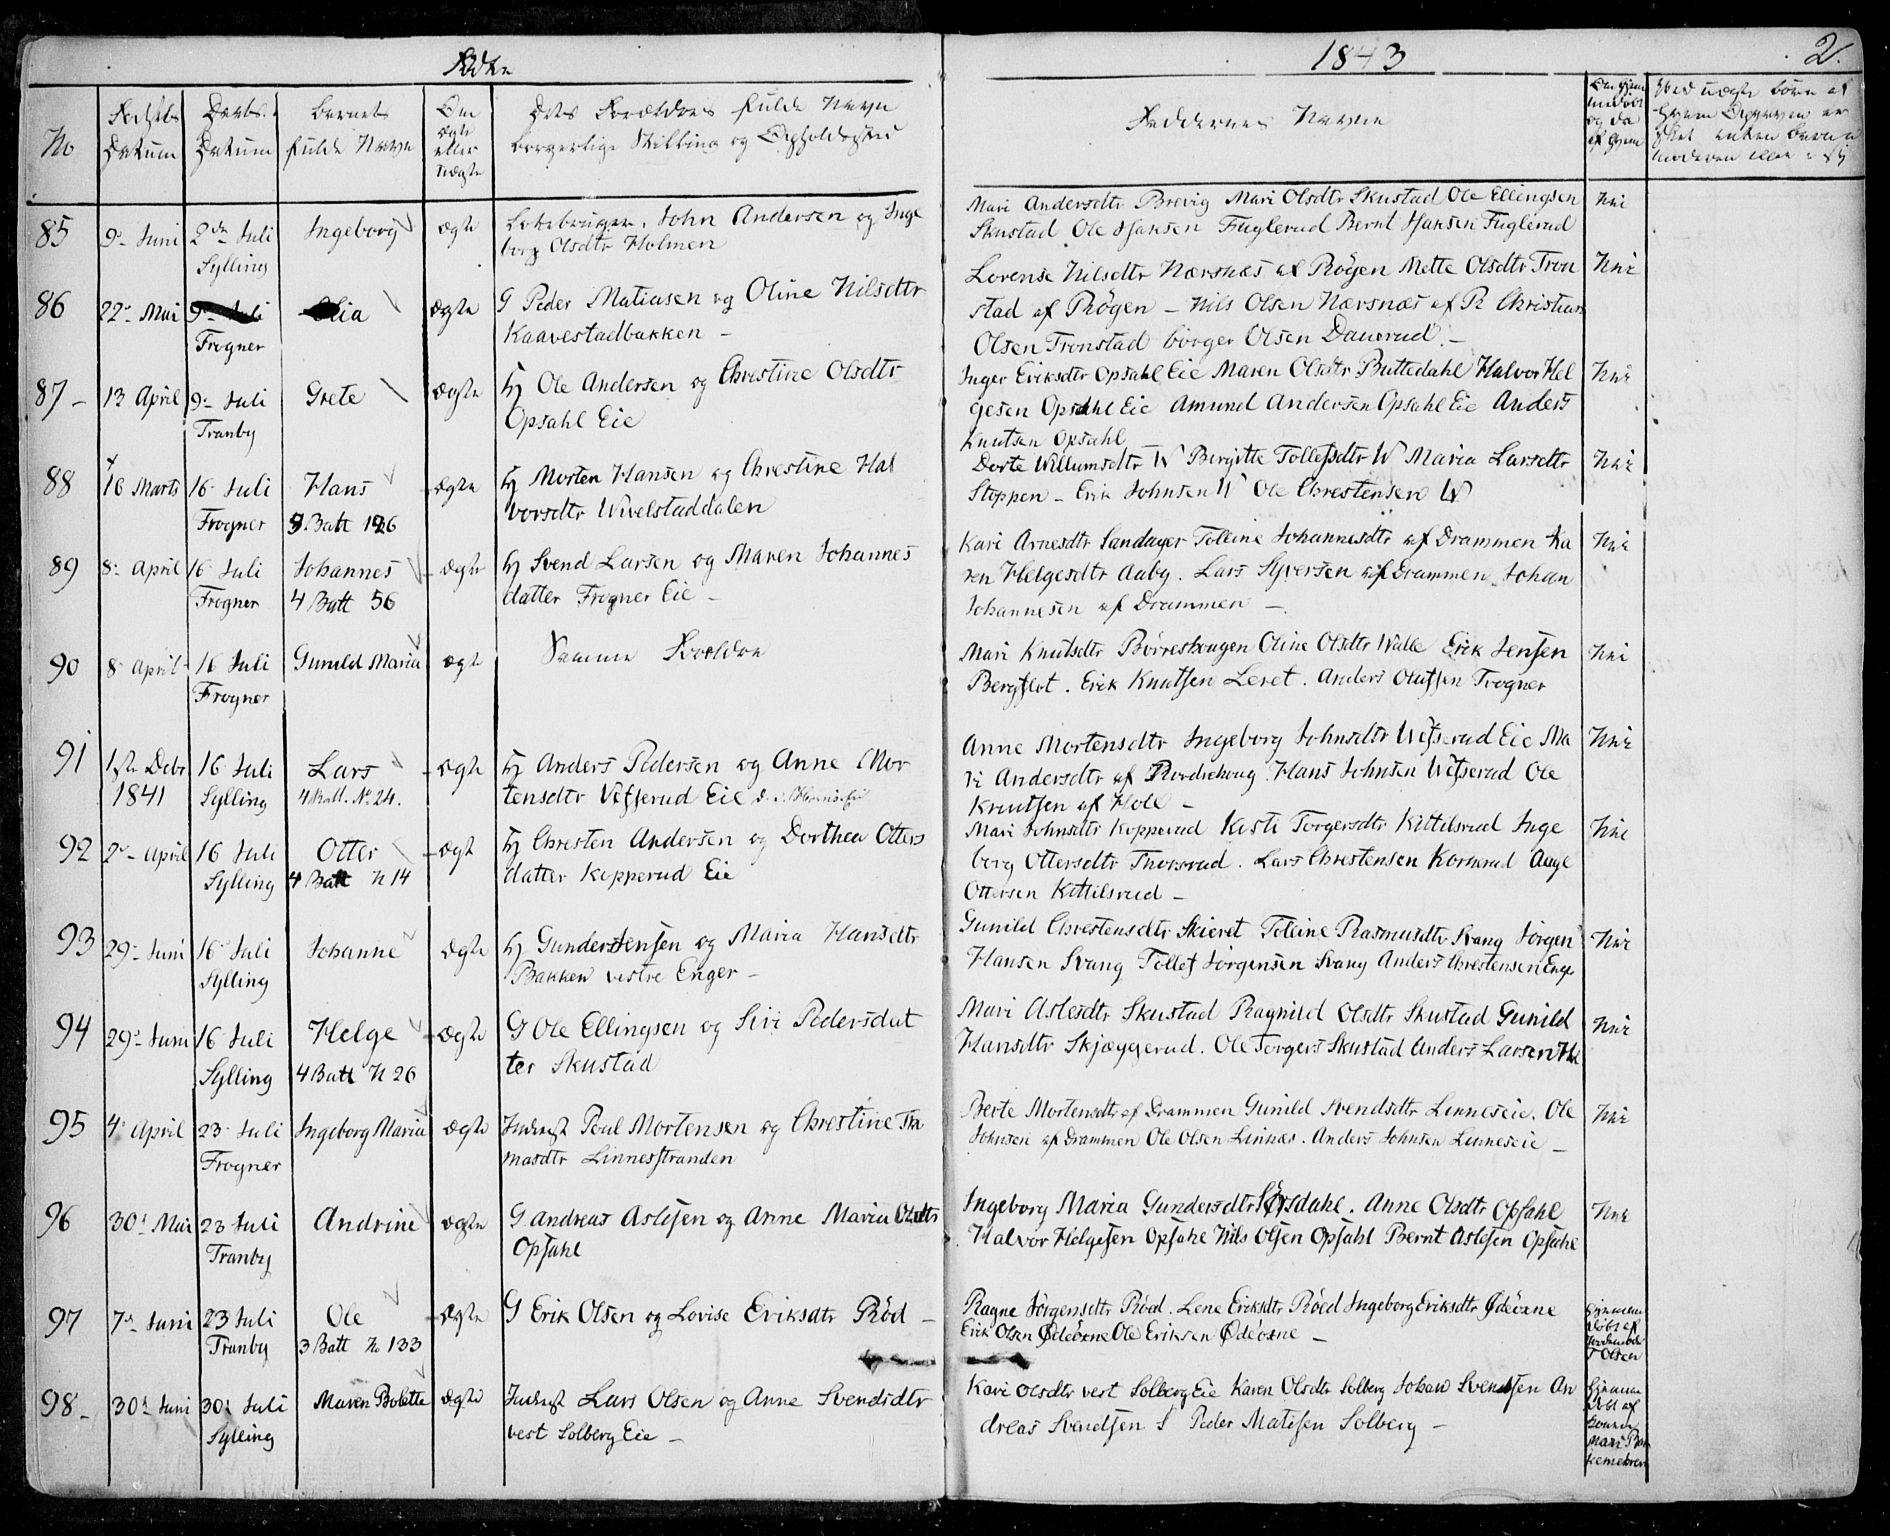 Fødte
1843
2.
No
Fødsels Datum
Daabs Datum
Barnets fulde Navn
Om ægte eller uægte
Dets Forældres fulde Navn
borgerlige Stilling og Opholdssted
Faddernes Navne
85
9de Juni
2den Juli
Sylling
Ingeborg
ægte
John Andersen og Inge
borg Olsdtr Holmen
Mari Andersdtr Brevig Mari Olsdtr Skustad Ole Ellingsen
Skustad Ole Hansen Fuglerud Bernt Hansen Fuglerud
Nei
86
22de Mai
9de Juli
Frogner
Olia
ægte
G Peder Matiasen og Oline Nilsdtr
Kaavestadbakken –
Lorense Nilsdtr Nærsnæs af Røgen Mette Olsdtr Tron
stad af Røgen – Nils Olsen Nærsnæs af R Christian
Olsen Tronstad børger Olsen Dauerud –
Nei
87 –
13 April
9de Juli
Tranby
Grete
ægte
Hj Ole Andersen og Christine Olsdtr
Opsahl Eie
Inger Eriksdtr Opsahl Eie Maren Olsdtr Buttedahl Halvor Hel
gesen Opsahl Eie Amund Andersen Opsahl Eie Anders
Knutsen Opsahl
Nei
88
16 Marts
16 Juli
Frogner
Hans
Batt 126
ægte
Hj Morten Hansen og Christine Hal
vorsdtr Wivelstaddalen
Dorte Willumsdtr W Birgitte Tollefsdtr W Maria Larsdtr
Stoppen – Erik Johnsen W Ole Chrestensen W
Nei
89
8de April
16 Juli
Frogner
Johannes
4 Batt 56
ægte
Hj Svend Larsen og Maren Johannes
datter Frogner Eie –
Kari Arnesdtr Sandager Tolline Johannesdtr af Drammen Ka
ren Helgesdtr Aaby. Lars Syversen af Drammen Johan
Johannesen af Drammen –
Nei
90
8 April
16 Juli
Frogner
Gunild Maria
ægte
Samme Forældre
Mari Knutsdtr Børreshaugen Oline Olsdtr Walle Erik Jensen
Bergflot. Erik Knutsen Leret. Anders Olufsen Frogner
Nei
91
1ste Debr
1841
16 Juli
Sylling
Lars
4 Batt. No 24.
ægte
Hj Anders Pedersen og Anne Mor
tensdtr Vefserud Eie
Anne Mortensdtr Ingeborg Johnsdtr Wefserud Eie Ma
ri Andersdtr af Nordrehoug Hans Johnsen Wefserud Ole
Knutsen af Hole –
Nei
92
2de April
16 Juli
Sylling
Otter
4 Batt N 14
ægt
Hj Chresten Andersen og Dorthea Otters
datter Kopperud Eie
Mari Johnsdtr Kopperud Kisti Torgersdtr Kittilsrud Inge
borg Ottersdtr Thorsrud. Lars Chrestensen Kornerud Aage
Ottersen Kittilsrud –
Nei
93
29de Juni
16 Juli
Sylling
Johanne
ægte
Hj Gunder Jensen og Maria Hansdtr
Bakken vestre Enger –
Gunild Chrestensdtr Skieret Toline Rasmusdtr Svang Jörgen
Hansen Svang Tollef Jörgensen Svang Anders Chrestensen Enger
Nei
94
29de Juni
16 Juli
Sylling
Helge
4 Batt N 26
ægte
G Ole Ellingsen og Siri Pedersdat
ter Skustad
Mari Aslesdtr Skustad Ragnild Olsdtr Skustad Gunild
Hansdtr Skjæggerud. Ole Torgers Skustad Anders Larsen
Nei
95
4de April
23 Juli
Frogner
Ingeborg Maria
ægte
Inderst Poul Mortensen og Chrestine Tho
masdtr Linnesstranden
Berte Mortensdtr af Drammen Gunild Svendsdtr Linneseie. Ole
Johnsen af Drammen Ole Olsen Linnæs. Anders Johnsen Linneseie –
Nei
96
30de Mai
23 Juli
Tranby
Andrine
ægte
G Andreas Aslesen og Anne Maria Olsdtr
Opsahl
Ingeborg Maria Gundersdtr Sørsdahl. Anne Olsdtr Opsahl
Halvor Helgesen Opsahl Nils Olsen Opsahl Bernt Aslesen Opsahl
Nei
97
7de Juni
23 Juli
Tranby
Ole
3 Batt No 133
ægte
G Erik Olsen og Lovise Eriksdtr Röd –
Ragne Jörgensdtr Röed. Lene Eriksdtr Röed Ingeborg Eriksdtr Ødeörne
Erik Olsen Ødeörne Ole Eriksen Ødeörne –
Hjemme
döbt af
T Olsen
98 –
30de Juni
30de Juli
Sylling
Maren Bolette
ægte
Inderst Lars Olsen og Anne Svendsdtr
vest Solberg Eie –
Kari Olsdtr vest Solberg Eie Karen Olsdtr Solberg Johan Svendsen An
dreas Svendsen S Peder Matisen Solberg –
Hjemme
döbt af
Mari